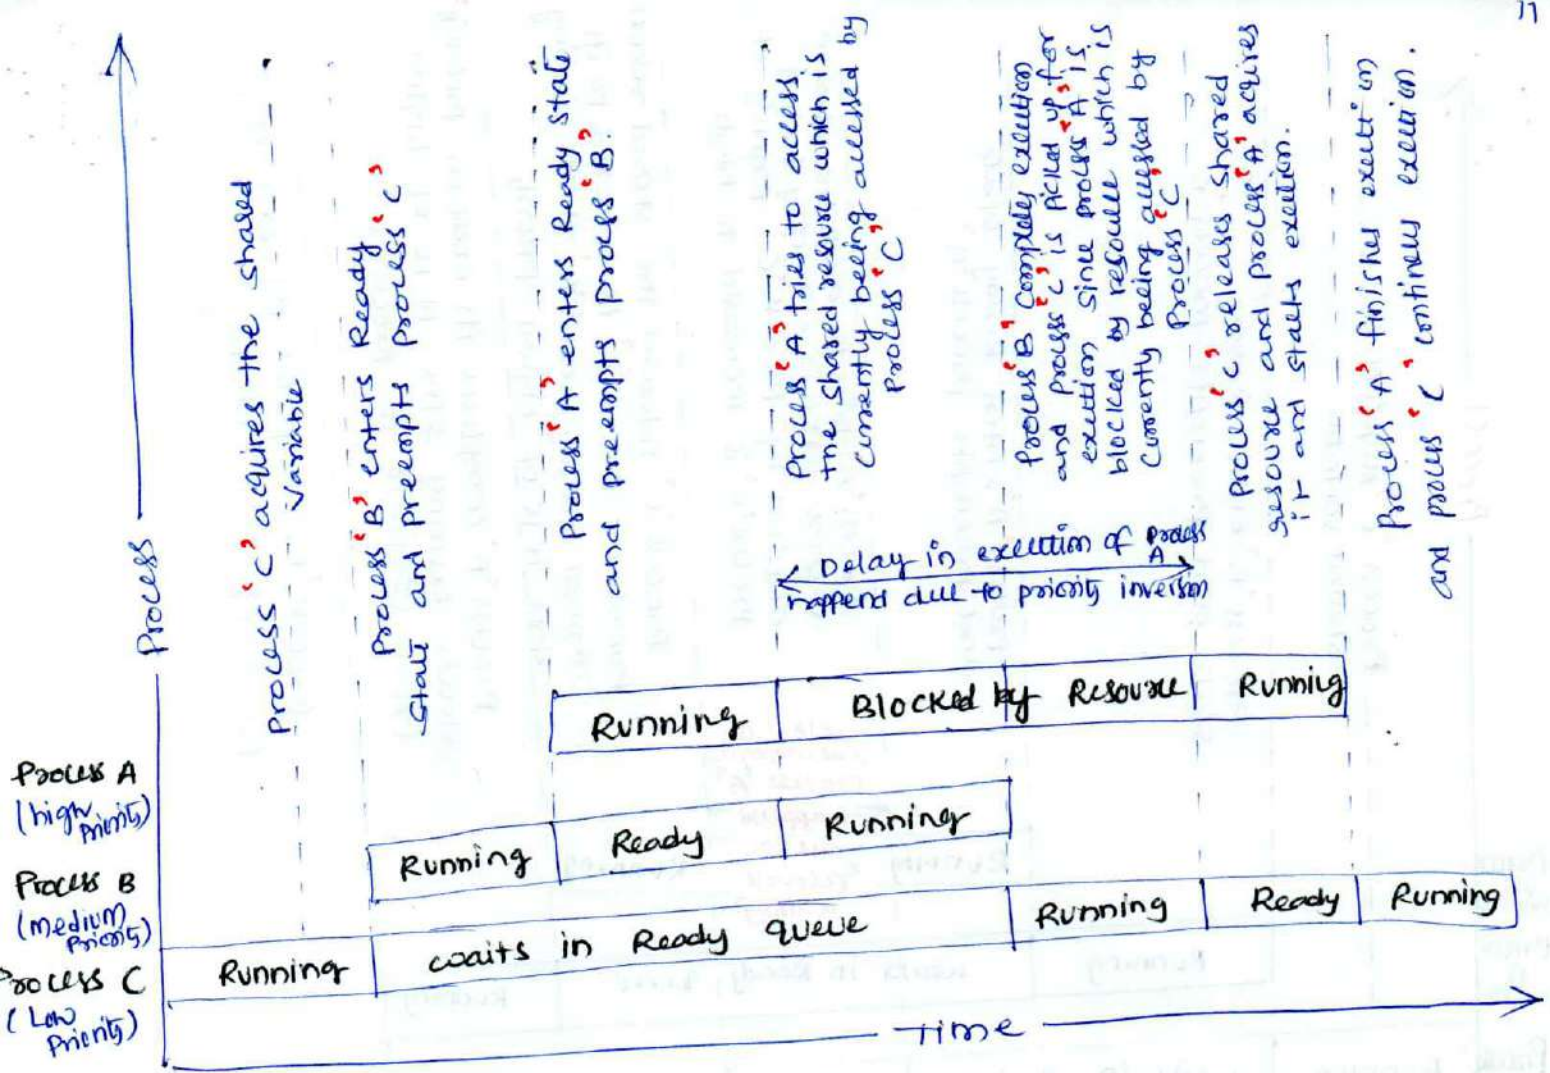 11
Process
Process 'C' acquires the shared
variable
Process 'B' enters Ready
State and preempts process 'C'
Process 'A' enters Ready state
and preempts process 'B'.
Process 'A' tries to access
the shared resource which is
currently being accessed by
Process 'C'
Process 'B' Completes execution
and process 'C' is picked up for
execution since process 'A' is
blocked by resource which is
currently being accessed by
Process 'C'
Process 'C' releases shared
resource and process 'A' acquires
it and starts execution.
Process 'A' finishes execution
and process 'C' continues execution.
Delay in execution of process
A
happend due to priority inversion
Process A
(high
Priority)
Running
Blocked by Resource
Running
Process B
(medium
Priority)
Running
Ready
Running
Process C
(Low
Priority)
Running
waits in Ready queue
Running
Ready
Running
Time